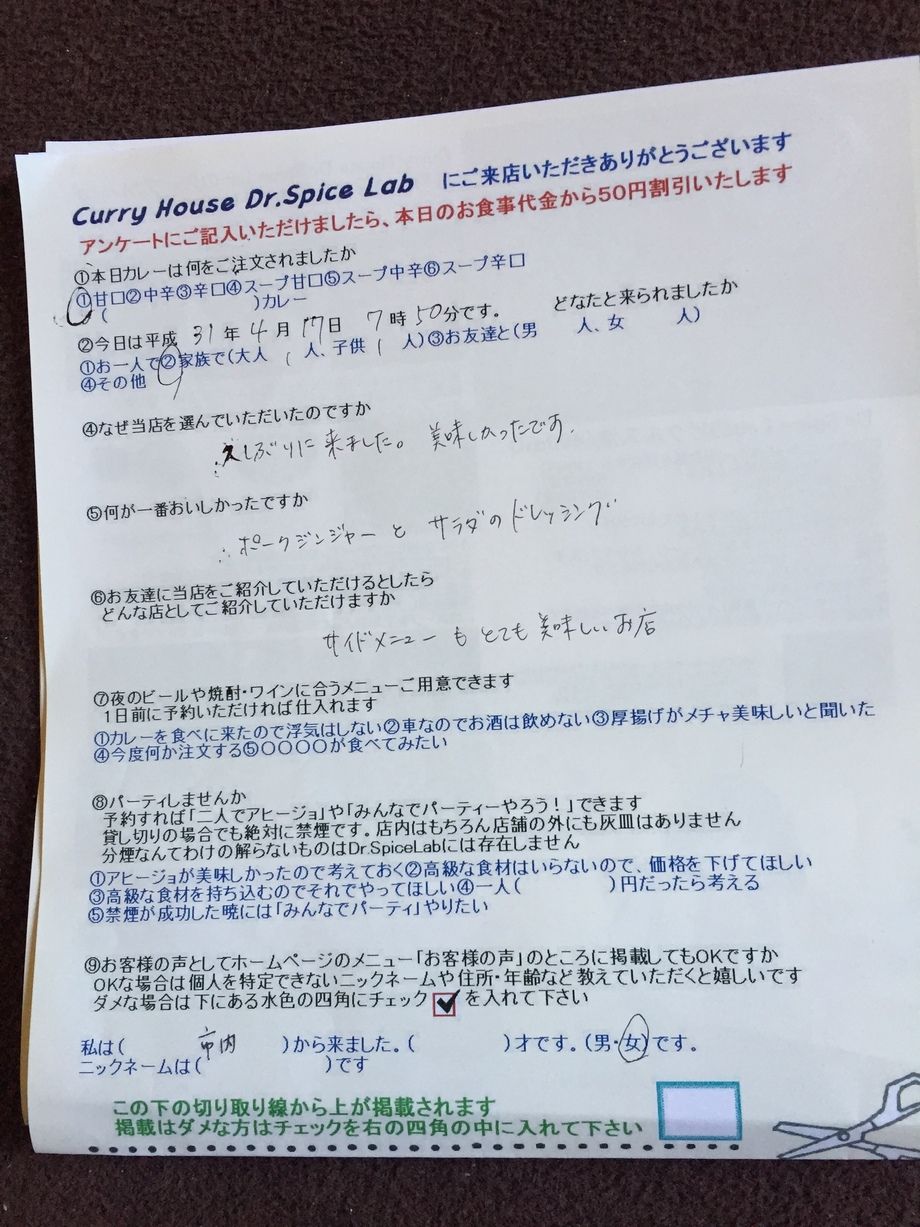 Curry House Dr.Spice Lab にご来店いただきありがとうございます
アンケートにご記入いただけましたら、本日のお食事代金から50円割引いたします
①本日カレーは何をご注文されましたか
①甘口②中辛③辛口④スープ甘口⑤スープ中辛⑥スープ辛口
( )カレー
②今日は平成 31年 4月 17日 7時 50分です。 どなたと来られましたか
①お一人で②家族で(大人 1 人、子供 1 人)③お友達と(男 人、女 人)
④その他
④なぜ当店を選んでいただいたのですか
久しぶりに来ました。美味しかったです。
⑤何が一番おいしかったですか
ポークジンジャーと サラダのドレッシング
⑥お友達に当店をご紹介していただけるとしたら
どんな店としてご紹介していただけますか
サイドメニューもとても美味しいお店
⑦夜のビールや焼酎・ワインに合うメニューご用意できます
1日前に予約いただければ仕入れます
①カレーを食べに来たので浮気はしない②車なのでお酒は飲めない③厚揚げがメチャ美味しいと聞いた
④今度何か注文する⑤〇〇〇〇が食べてみたい
⑧パーティしませんか
予約すれば「二人でアヒージョ」や「みんなでパーティーやろう!」できます
貸し切りの場合でも絶対に禁煙です。店内はもちろん店舗の外にも灰皿はありません
分煙なんてわけの解らないものはDr.SpiceLabには存在しません
①アヒージョが美味しかったので考えておく②高級な食材はいらないので、価格を下げてほしい
③高級な食材を持ち込むのでそれでやってほしい④一人( )円だったら考える
⑤禁煙が成功した暁には「みんなでパーティ」やりたい
⑨お客様の声としてホームページのメニュー「お客様の声」のところに掲載してもOKですか
OKな場合は個人を特定できないニックネームや住所・年齢など教えていただくと嬉しいです
ダメな場合は下にある水色の四角にチェック☑を入れて下さい
私は( 市内 )から来ました。( )才です。(男・女)です。
ニックネームは( )です
この下の切り取り線から上が掲載されます
掲載はダメな方はチェックを右の四角の中に入れて下さい